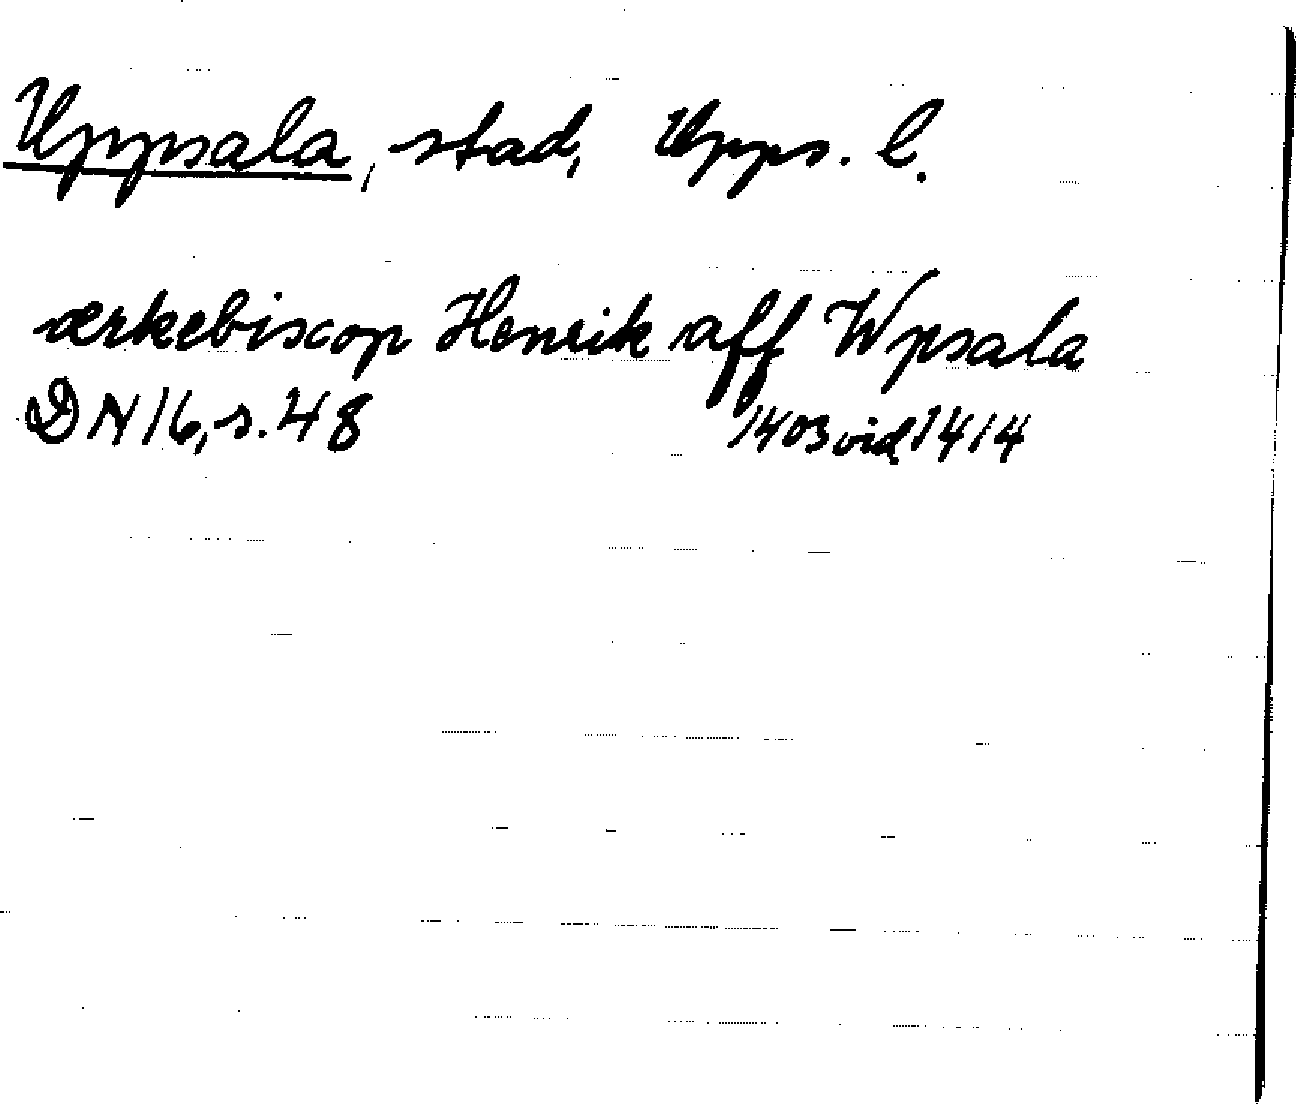 Uppsala, stad, Upps. l.
ærkebiscop Henrik aff Wpsala
DN 16, s. 48 1403 vid 1414